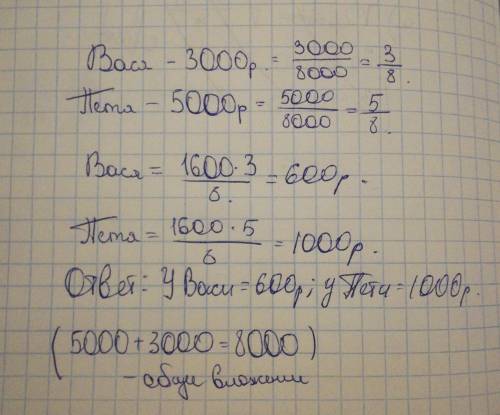 Вася - 3000р. = 3000/8000 = 3/8.
Петя - 5000р = 5000/8000 = 5/8.
Вася = 1600·3/8. = 600р.
Петя = 1600·5/8 = 1000р.
Ответ: У Васи = 600р; у Пети = 1000р.
(5000+3000=8000)
- общие вложения